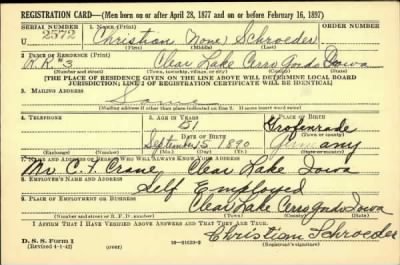 REGISTRATION CARD—(Men born on or after April 28, 1877 and on or before February 16, 1897)
SERIAL NUMBER 1. NAME (Print) ORDER NUMBER
U 2572 Christian (None) Schroeder
(First) (Middle) (Last)
2. PLACE OF RESIDENCE (Print)
R.R. #3 Clear Lake Cerro Gordo Iowa
(Number and street) (Town, township, village, or city) (County) (State)
[THE PLACE OF RESIDENCE GIVEN ON THE LINE ABOVE WILL DETERMINE LOCAL BOARD
JURISDICTION; LINE 2 OF REGISTRATION CERTIFICATE WILL BE IDENTICAL]
3. MAILING ADDRESS
Same
[Mailing address if other than place indicated on line 2. If same insert word same]
4. TELEPHONE 5. AGE IN YEARS 6. PLACE OF BIRTH
51 Grofenrade
DATE OF BIRTH (Town or county)
September 15 1890 Germany
(Exchange) (Number) (Mo.) (Day) (Yr.) (State or country)
7. NAME AND ADDRESS OF PERSON WHO WILL ALWAYS KNOW YOUR ADDRESS
Mr C. F. Crane Clear Lake Iowa
8. EMPLOYER'S NAME AND ADDRESS
Self Employed
9. PLACE OF EMPLOYMENT OR BUSINESS
Clear Lake Cerro Gordo Iowa
(Number and street or R. F. D. number) (Town) (County) (State)
I AFFIRM THAT I HAVE VERIFIED ABOVE ANSWERS AND THAT THEY ARE TRUE.
Christian Schroeder
D. S. S. Form 1
(Revised 4-1-42) (over) (Registrant's signature)